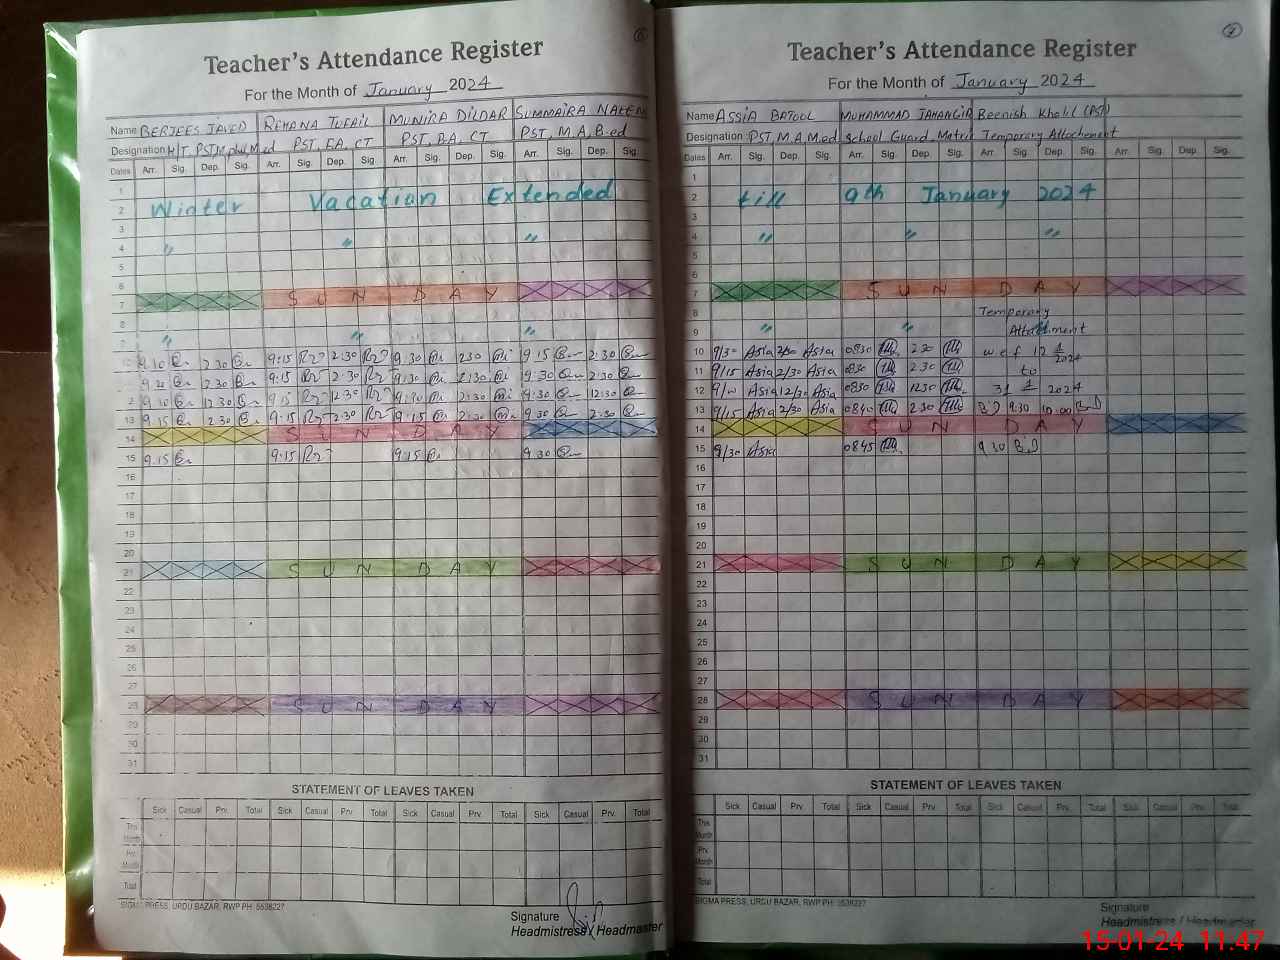 6
Teacher's Attendance Register
For the Month of January 2024
Name BERJEES JAVED REHANA TUFAIL MUNIRA DILDAR SUMMAIRA NAEEM
Designation H/T, PST, M.Ed PST, BA, CT PST, BA, CT PST, M.A, B.ed
Dates Arr. Sig. Dep. Sig. Arr. Sig. Dep. Sig. Arr. Sig. Dep. Sig. Arr. Sig. Dep. Sig.
1
2 Winter Vacation Extended
3
4 " " "
5
6
7 S U N D A Y
8
9 " " "
10 9:10 2:30 9:15 2:30 9:30 2:30 9:15 2:30
11 2:30 9:15 2:30 9:30 2:30 9:30 2:30
12 9:10 12:30 9:15 12:30 12:30 9:30 12:30
13 9:15 2:30 9:15 2:30 9:15 2:30 9:30 2:30
14 S U N D A Y
15 9:15 9:15 9:15 9:30
16
17
18
19
20
21 S U N D A Y
22
23
24
25
26
27
28 S U N D A Y
29
30
31
STATEMENT OF LEAVES TAKEN
Sick Casual Prv. Total Sick Casual Prv. Total Sick Casual Prv. Total Sick Casual Prv. Total
This Month
Prv. Month
Total
SIGMA PRESS, URDU BAZAR, RWP PH: 5538227
Signature
Headmistress / Headmaster
7
Teacher's Attendance Register
For the Month of January 2024
Name ASSIA BATOOL MUHAMMAD JAHANGIR Beenish Khalil (PST)
Designation PST, M.A, M.ed School Guard, Matric Temporary Attachement
Dates Arr. Sig. Dep. Sig. Arr. Sig. Dep. Sig. Arr. Sig. Dep. Sig. Arr. Sig. Dep. Sig.
1
2 till 9th January 2024
3
4 " " "
5
6
7 S U N D A Y
8 Temporary
9 " " Attachment
10 9/30 Asia 2/30 Asia 0830 2:30 w e f 12 1/2024
11 9/15 Asia 2/30 Asia 0830 2:30 to
12 Asia 12/30 Asia 0830 1230 31 1 2024
13 9/15 Asia 2/30 Asia 0840 2:30 9:30
14 S U N D A Y
15 9/30 Asia 0845 9:30
16
17
18
19
20
21 S U N D A Y
22
23
24
25
26
27
28 S U N D A Y
29
30
31
STATEMENT OF LEAVES TAKEN
Sick Casual Prv. Total Sick Casual Prv. Total Sick Casual Prv. Total Sick Casual Prv. Total
This Month
Prv. Month
Total
SIGMA PRESS, URDU BAZAR, RWP PH: 5538227
Signature
Headmistress / Headmaster
15-01-24 11:47